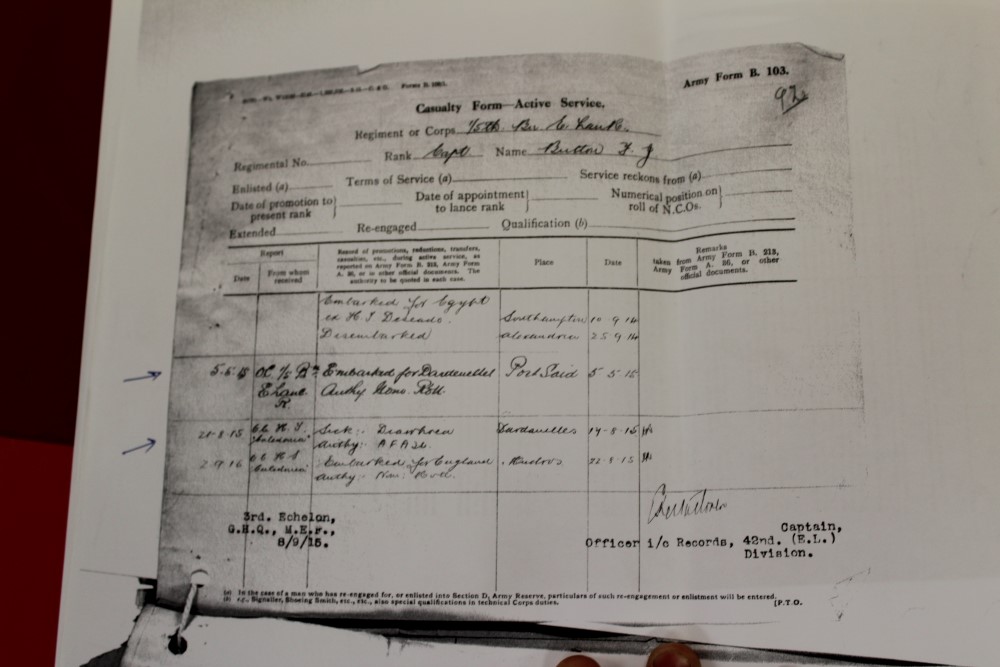 Army Form B. 103.
92
Casualty Form—Active Service.
Regiment or Corps 1/5th. Bn E. Lancs R.
Regimental No. Rank Capt Name Button F. J
Enlisted (a) Terms of Service (a) Service reckons from (a)
Date of promotion to present rank } Date of appointment to lance rank } Numerical position on roll of N.C.Os. }
Extended Re-engaged Qualification (b)
Report
Date
From whom received
Record of promotions, reductions, transfers, casualties, etc., during active service, as reported on Army Form B. 213, Army Form A. 36, or in other official documents. The authority to be quoted in each case.
Place
Date
Remarks
taken from Army Form B. 213, Army Form A. 36, or other official documents.
Embarked for Egypt
ex H. T. Deseado. Southampton 10 · 9 14
Disembarked Alexandria 25 9 14
5.5.15 OC 1/5 Bn Embarked for Dardanelles Port Said 5 5 15
E Lanc R. Authy Nom. Roll
21-8-15 Sick: Diarrhoea Dardanelles 19-8-15
Authy: A F A36.
Embarked for England Mudros
Authy: Nom: Roll.
3rd. Echelon,
G.H.Q., M.E.F.,
8/9/15.
Captain,
Officer i/c Records, 42nd. (E.L.)
Division.
(a) In the case of a man who has re-engaged for, or enlisted into Section D, Army Reserve, particulars of such re-engagement or enlistment will be entered.
(b) e.g., Signaller, Shoeing Smith, etc., etc., also special qualifications in technical Corps duties.
[P.T.O.